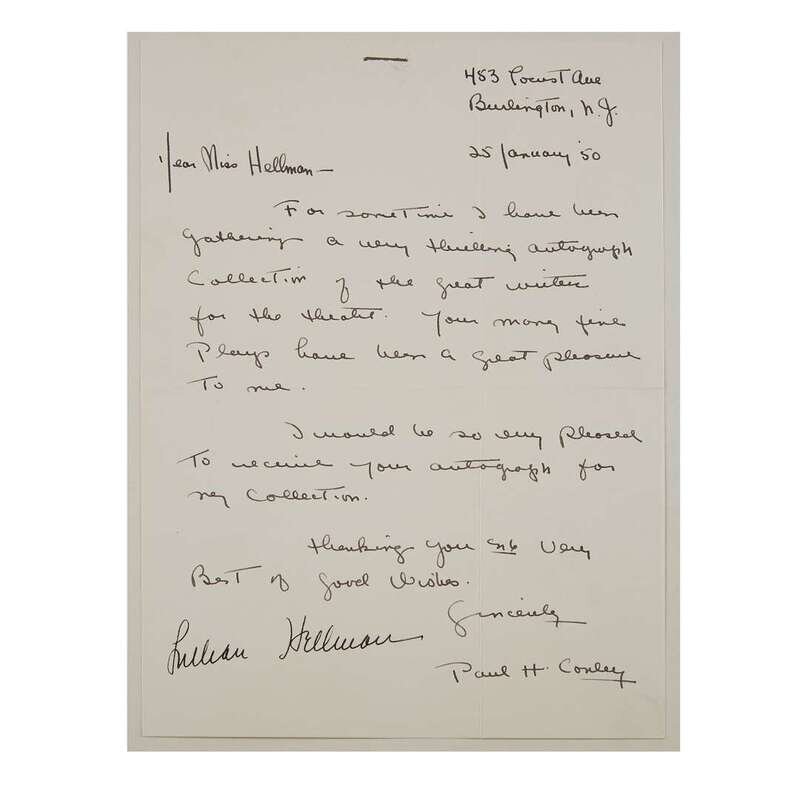 483 Locust Ave
Burlington, N.J.
25 January '50
Dear Miss Hellman —
For sometime I have been
gathering a very thrilling autograph
Collection of the great writers
for the theatre. Your many fine
Plays have been a great pleasure
To me.
I would be so very pleased
To receive your autograph for
my Collection.
Thanking you Very
Best of Good Wishes.
Sincerely
Lillian Hellman
Paul H. Conley